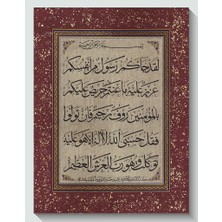 لقد جاءكم رسول من أنفسكم
عزيز عليه ما عنتم حريص عليكم
بالمؤمنين رؤوف رحيم فإن تولوا
فقل حسبي الله لا إله إلا هو عليه
توكلت وهو رب العرش العظيم